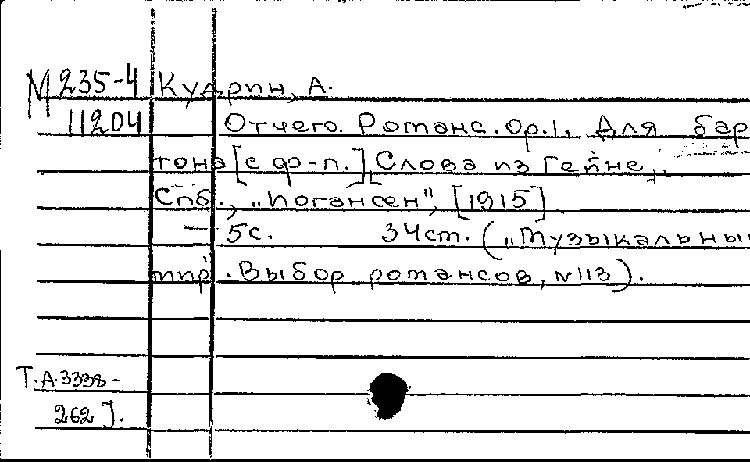 М 235-4 Кудрин, А.
11204 Отчего. Романс. Op.1. Для бар
тона [с ф-п.] [Слова из Гейне].
Спб., "Иогансен", [1915]
— 5с. 34см. ("Музыкальны
мир". Выбор романсов, №113).
Т.А.3338-
262].